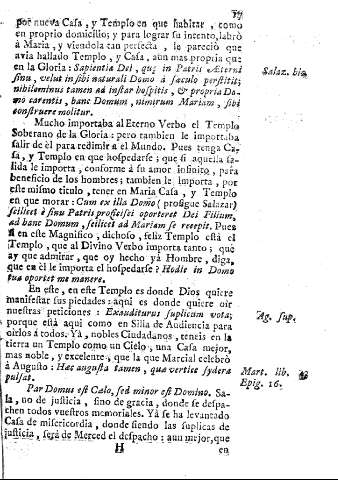 57
por nueva Casa, y Templo en que habitar, como
en proprio domicilio; y para lograr su intento, labrò
à Maria, y viendola tan perfecta, le pareciò que
avia hallado Templo, y Casa, aun mas propria que
en la Gloria: Sapientia Dei, quę in Patris Æterni
sinu, velut in sibi naturali Domo à sæculo perstitit;
nihilominus tamen ad instar hospitis, & propria Do-
mo carentis, hanc Domum, nimirum Mariam, sibi
construere molitur.
Salaz. bis
Mucho importaba al Eterno Verbo el Templo
Soberano de la Gloria: pero tambien le importaba
salir de èl para redimir a el Mundo. Pues tenga Ca-
sa, y Templo en que hospedarse; que si aquella sa-
lida le importa, conforme á su amor infinito, para
beneficio de los hombres; tambien le importa, por
este mismo titulo, tener en Maria Casa, y Templo
en que morar: Cum ex illa Domo (prosigue Salazar)
scilicet è sinu Patris proficisci oporteret Dei Filium,
ad hanc Domum, scilicet ad Mariam se recepit. Pues
si en este Magnifico, dichoso, feliz Templo està el
Templo, que al Divino Verbo importa tanto; què
ay que admirar, que oy hecho yá Hombre, diga,
que en èl le importa el hospedarse? Hodie in Domo
tua oportet me manere.
En este, en este Templo es donde Dios quiere
manifestar sus piedades: aqui es donde quiere oir
nuestras peticiones: Exauditurus suplicum vota;
porque està aqui como en Silla de Audiencia para
oirlos á todos. Yà, nobles Ciudadanos, teneis en la
tierra un Templo como un Cielo, una Casa mejor,
mas noble, y excelente, que la que Marcial celebrò
à Augusto: Hac augusta tamen, quæ vertice sydera
pulsat.
Ag. sup.
Mart. lib. 8
Epig. 16.
Par Domus est Cœlo, sed minor est Domino. Sa-
la, no de justicia, sino de gracia, donde se despa-
chen todos vuestros memoriales. Yà se ha levantado
Casa de misericordia, donde siendo las suplicas de
justicia, serà de Merced el despacho: aun mejor, que
H
en